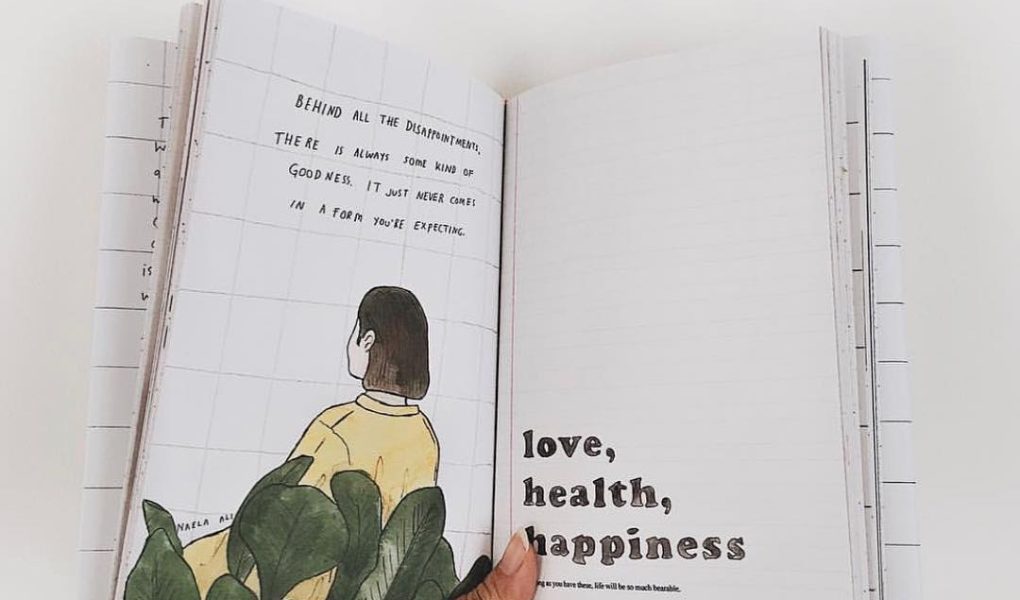 BEHIND ALL THE DISAPPOINTMENTS,
THERE IS ALWAYS SOME KIND OF
GOODNESS. IT JUST NEVER COMES
IN A FORM YOU'RE EXPECTING.
NAELA ALI
love,
health,
happiness
as you have these, life will be so much bearable.